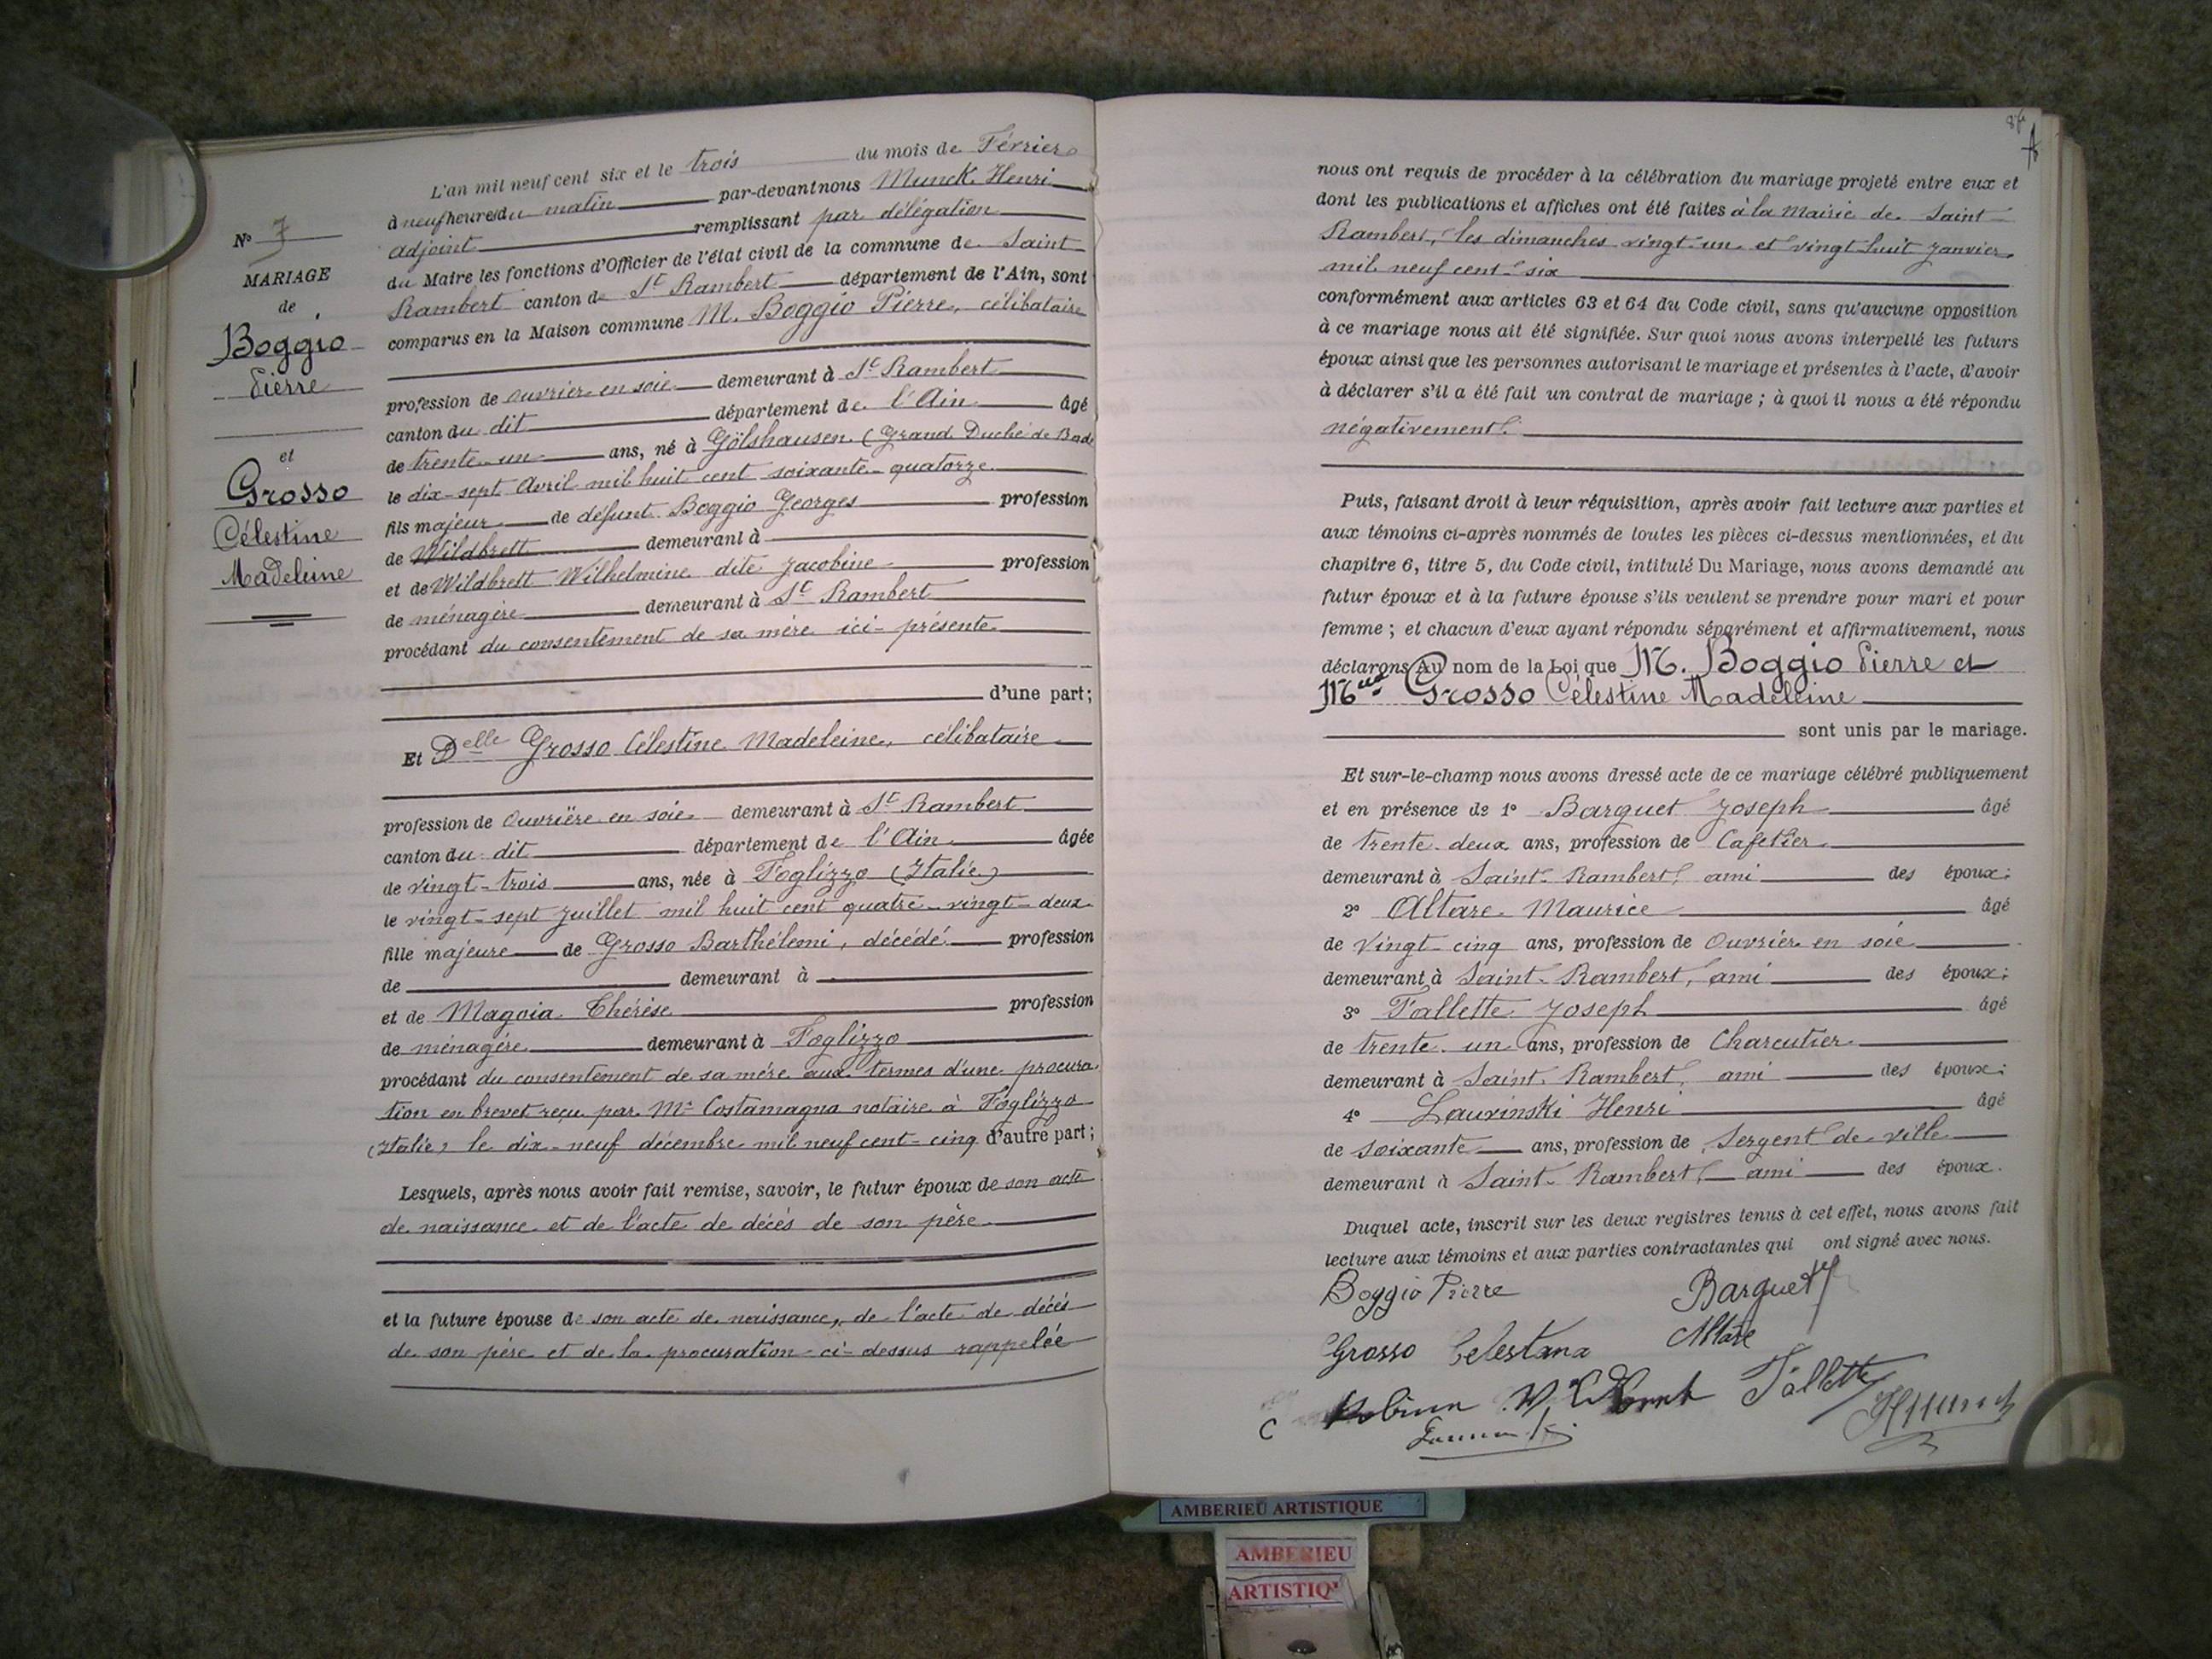 N° 7
MARIAGE
de
Boggio
Pierre
et
Grosso
Célestine
Madeleine
L'an mil neuf cent six et le trois du mois de Février
à neuf heures du matin par-devant nous Munck Henri
adjoint remplissant par délégation
du Maire les fonctions d'Officier de l'état civil de la commune de Saint
Rambert canton de St Rambert département de l'Ain, sont
comparus en la Maison commune M. Boggio Pierre, célibataire
profession de ouvrier en soie demeurant à St Rambert
canton du dit département de l'Ain âgé
de trente-un ans, né à Gölshausen (Grand Duché de Bade
le dix-sept Avril mil huit cent soixante-quatorze
fils majeur de défunt Boggio Georges profession
de Wildbrett demeurant à
et de Wildbrett Wilhelmine dite Jacobine profession
de ménagère demeurant à St Rambert
procédant du consentement de sa mère ici-présente
d'une part;
Et Delle Grosso Célestine Madeleine, célibataire
profession de ouvrière en soie demeurant à St Rambert
canton du dit département de l'Ain âgée
de vingt-trois ans, née à Foglizzo (Italie)
le vingt-sept Juillet mil huit cent quatre-vingt-deux
fille majeure de Grosso Barthélemi, décédé profession
de demeurant à
et de Magoia Thérèse profession
de ménagère demeurant à Foglizzo
procédant du consentement de sa mère aux termes d'une procura
tion en brevet reçu par Me Costamagna notaire à Foglizzo
(Italie) le dix-neuf décembre mil neuf cent-cinq d'autre part;
Lesquels, après nous avoir fait remise, savoir, le futur époux de son acte
de naissance et de l'acte de décès de son père
et la future épouse de son acte de naissance, de l'acte de décès
de son père et de la procuration ci-dessus rappelée
nous ont requis de procéder à la célébration du mariage projeté entre eux et
dont les publications et affiches ont été faites à la Mairie de Saint
Rambert, les dimanches vingt-un et vingt-huit Janvier
mil neuf cent six
conformément aux articles 63 et 64 du Code civil, sans qu'aucune opposition
à ce mariage nous ait été signifiée. Sur quoi nous avons interpellé les futurs
époux ainsi que les personnes autorisant le mariage et présentes à l'acte, d'avoir
à déclarer s'il a été fait un contrat de mariage; à quoi il nous a été répondu
négativement.
Puis, faisant droit à leur réquisition, après avoir fait lecture aux parties et
aux témoins ci-après nommés de toutes les pièces ci-dessus mentionnées, et du
chapitre 6, titre 5, du Code civil, intitulé Du Mariage, nous avons demandé au
futur époux et à la future épouse s'ils veulent se prendre pour mari et pour
femme; et chacun d'eux ayant répondu séparément et affirmativement, nous
déclarons Au nom de la Loi que M. Boggio Pierre et
Melle Grosso Célestine Madeleine
sont unis par le mariage.
Et sur-le-champ nous avons dressé acte de ce mariage célébré publiquement
et en présence de 1° Barquet Joseph âgé
de trente-deux ans, profession de Cafetier
demeurant à Saint-Rambert, ami des époux;
2° Altare Maurice âgé
de vingt-cinq ans, profession de ouvrier en soie
demeurant à Saint-Rambert, ami des époux;
3° Tallette Joseph âgé
de trente-un ans, profession de Charcutier
demeurant à Saint-Rambert, ami des époux;
4° Laurinski Henri âgé
de soixante ans, profession de Sergent de ville
demeurant à Saint-Rambert, ami des époux.
Duquel acte, inscrit sur les deux registres tenus à cet effet, nous avons fait
lecture aux témoins et aux parties contractantes qui ont signé avec nous.
Boggio Pierre Barquet J
Grosso Celestana Altare
Tallette
AMBERIEU ARTISTIQUE
AMBERIEU
ARTISTIQ